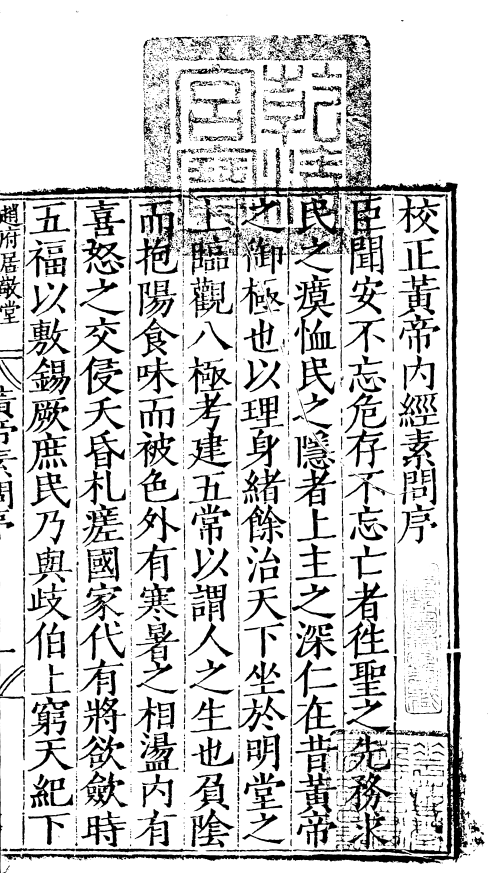 校正黃帝內經素問序
臣聞安不忘危存不忘亡者徃聖之先務求
民之瘼恤民之隱者上主之深仁在昔黃帝
之御極也以理身緒餘治天下坐於明堂之
上臨觀八極考建五常以謂人之生也負陰
而抱陽食味而被色外有寒暑之相盪內有
喜怒之交侵夭昏札瘥國家代有將欲斂時
五福以敷錫厥庶民乃與歧伯上窮天紀下
趙府居敬堂
黃帝素問序
一